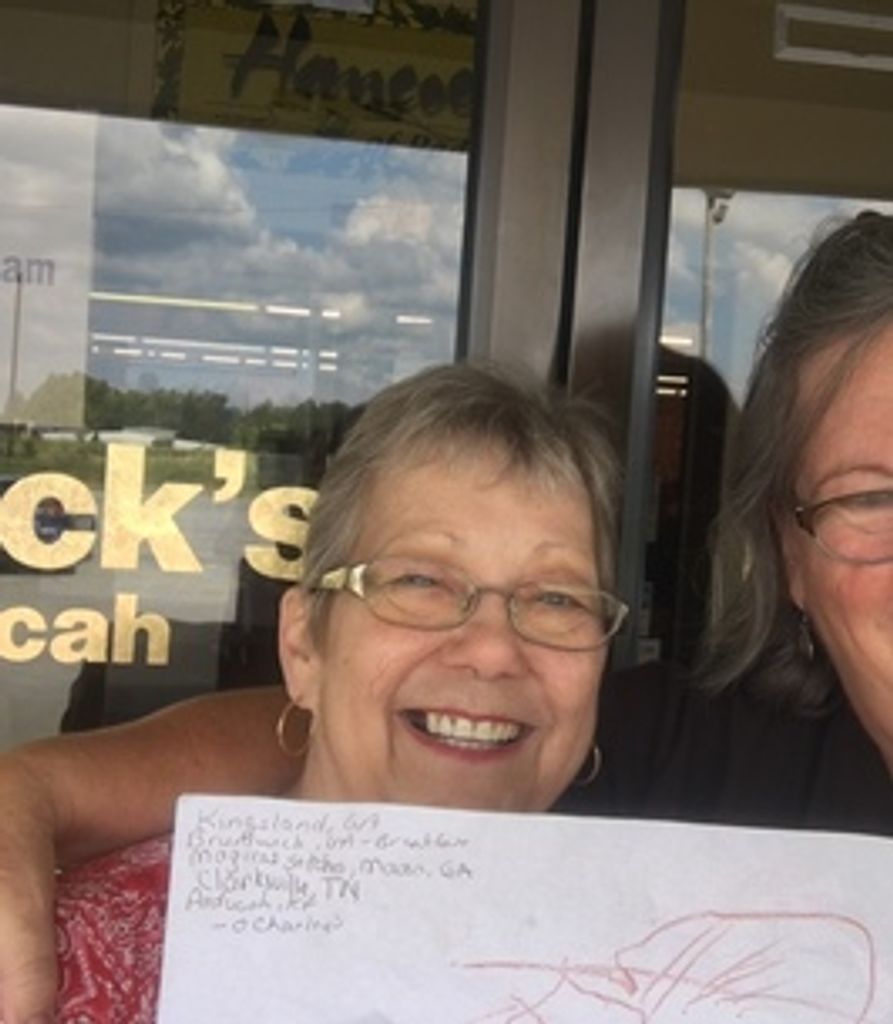 Hancoc
am
ck's
cah
Kingsland, GA
Brunswick, GA - Breakfast
Magical Stitches, Macon, GA
Clarksville, TN
Paducah, KY
- O'Charley's